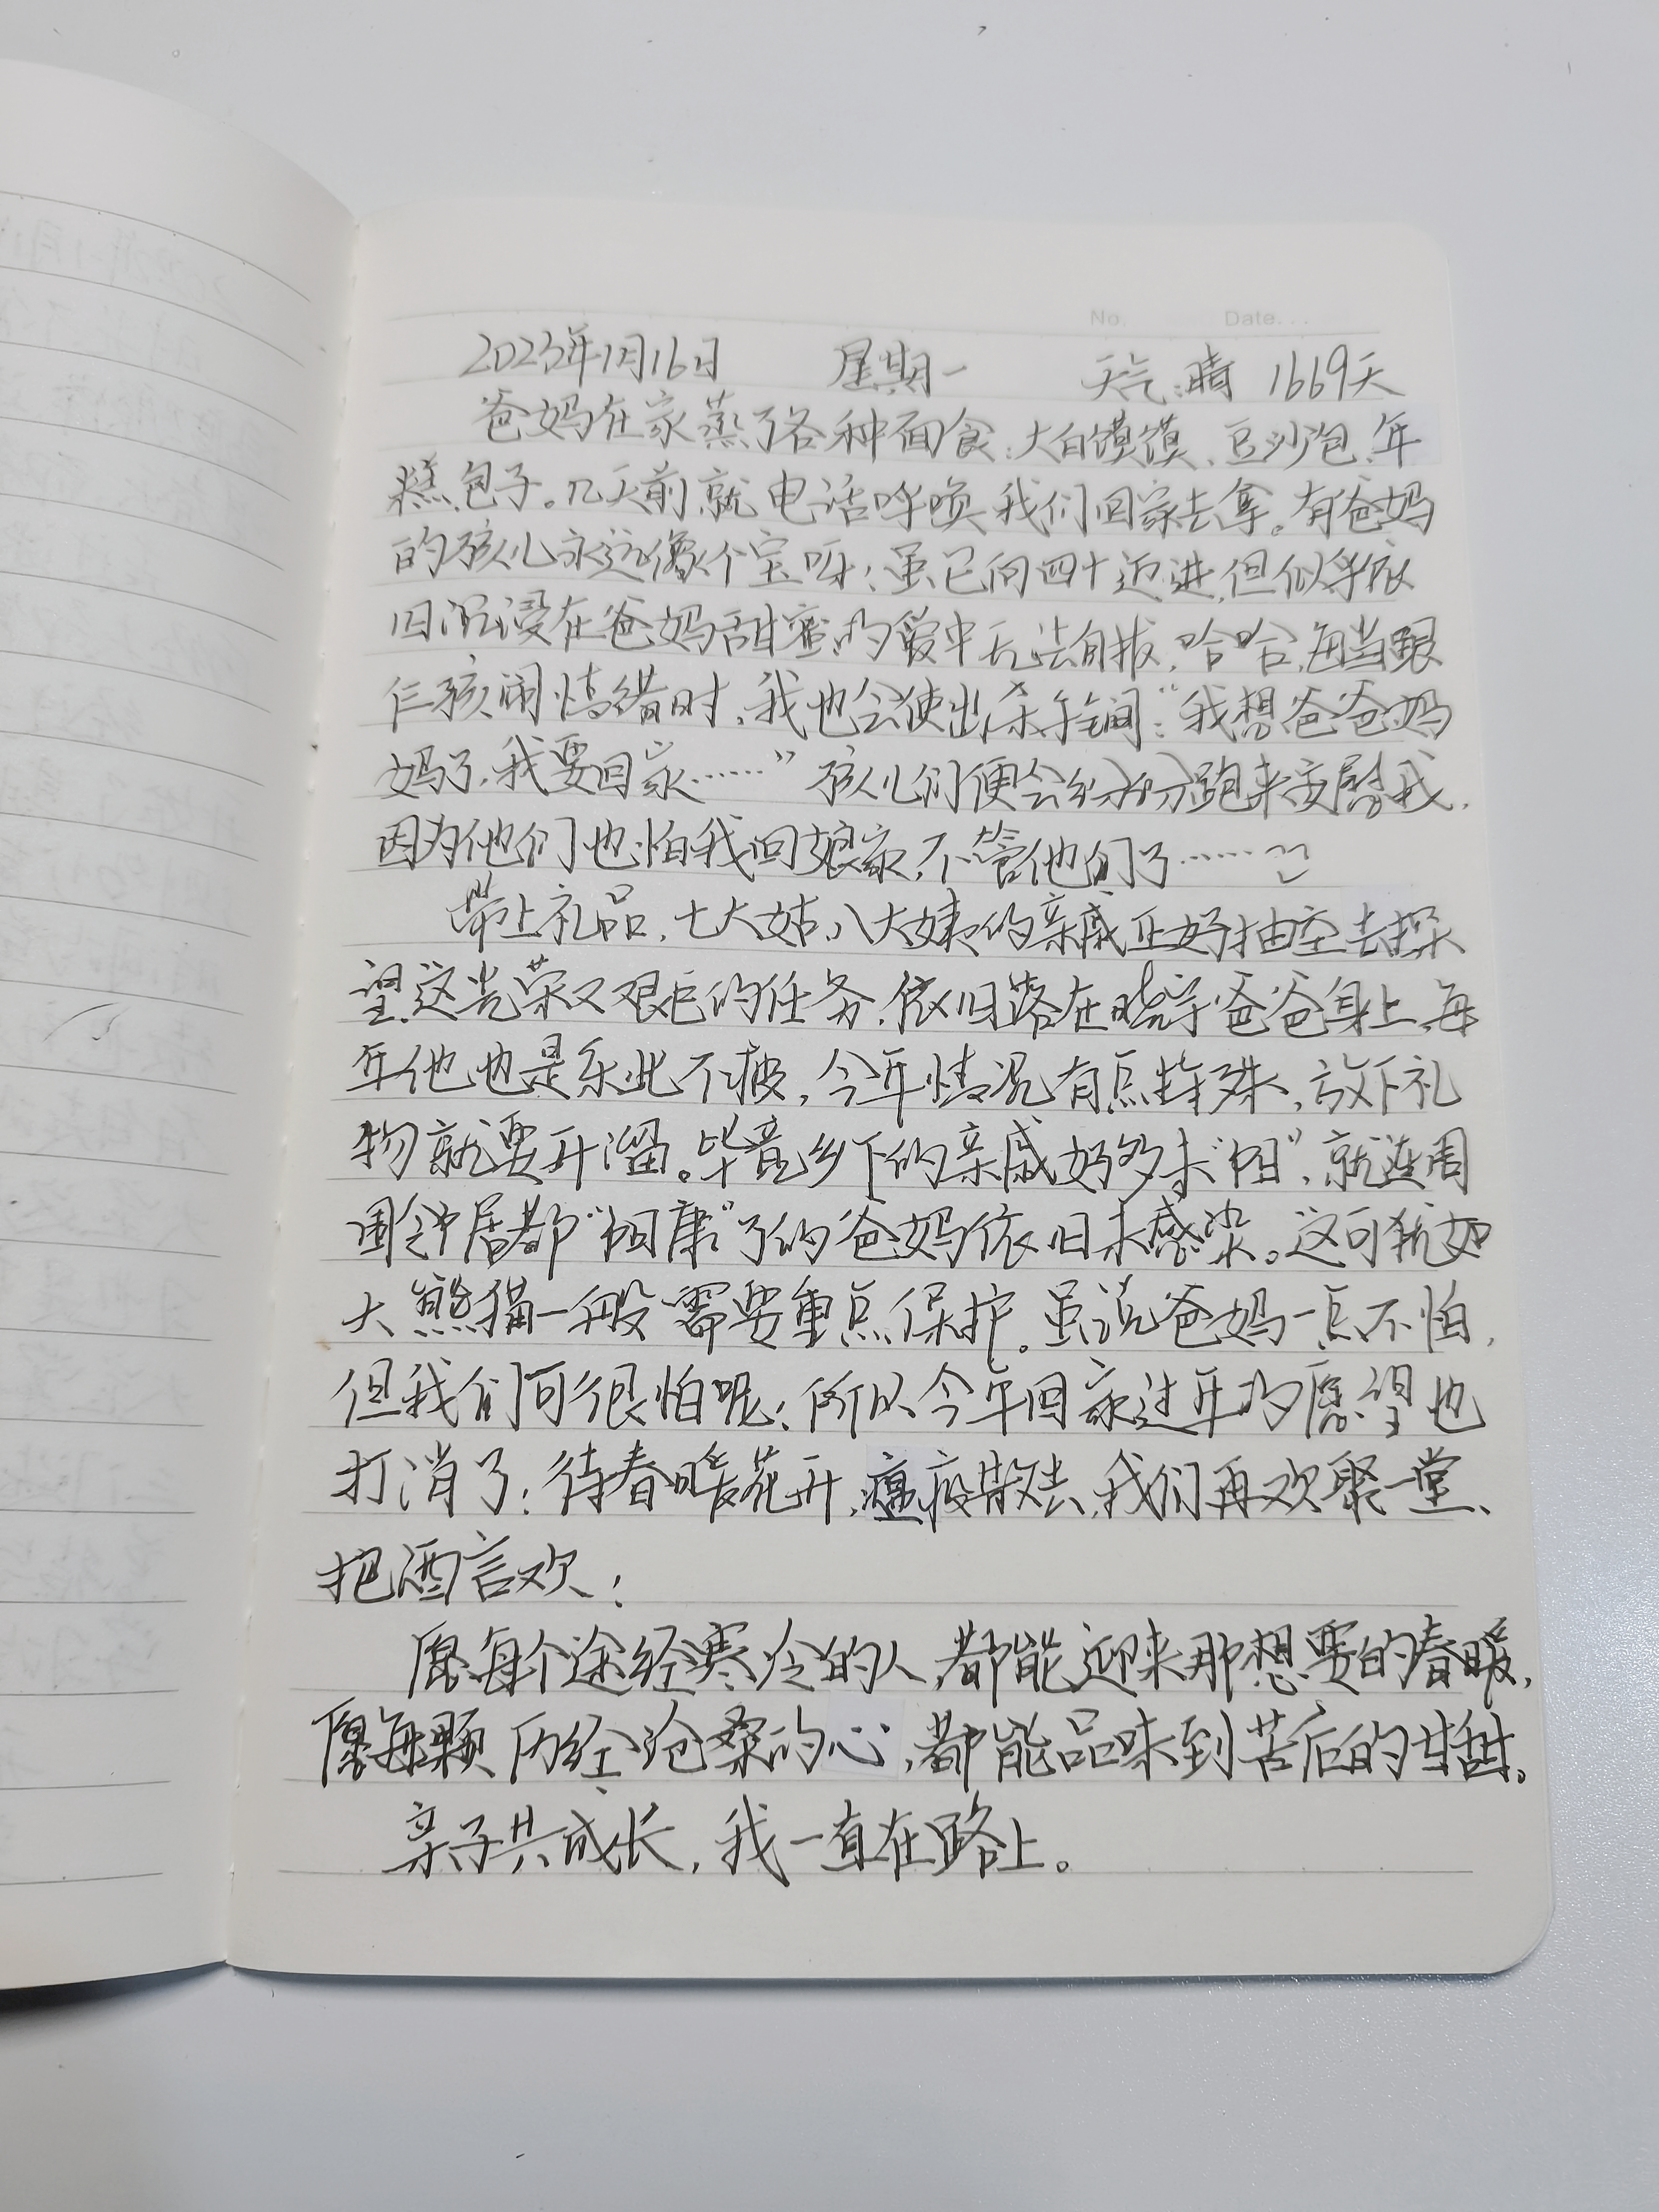 No. Date...
2023年1月16日 星期一 天气:晴 1669天
爸妈在家蒸了各种面食:大白馍馍、豆沙包、年
糕、包子。几天前就电话呼唤我们回家去拿。有爸妈
的孩儿永远像个宝呀!虽已向四十迈进,但似乎依
旧沉浸在爸妈甜蜜的爱中无法自拔,哈哈,每当跟
仨孩闹情绪时,我也会使出杀手锏:“我想爸爸妈
妈了,我要回家……”孩儿们便会纷纷跑来安慰我,
因为他们也怕我回娘家,不管他们了……
带上礼品,七大姑、八大姨的亲戚正好抽空去探
望,这光荣又艰巨的任务,依旧落在晓宇爸爸身上,每
年他也是乐此不疲,今年情况有点特殊,放下礼
物就要开溜。毕竟乡下的亲戚好多未“阳”,就连周
围邻居都“阳康”了的爸妈依旧未感染。这可犹如
大熊猫一般需要重点保护。虽说爸妈一点不怕,
但我们可很怕呢!所以今年回家过年的愿望也
打消了!待春暖花开,瘟疫散去,我们再欢聚一堂、
把酒言欢!
愿每个途经寒冷的人,都能迎来那想要的春暖,
愿每颗历经沧桑的心,都能品味到苦后的甘甜。
亲子共成长,我一直在路上。